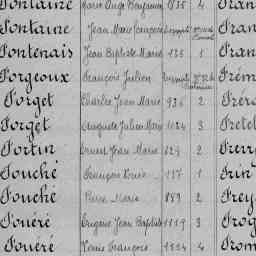 Fontaine Marie Ange Benjamin 4 Fran
Fontaine Jean Marie François Fran
Fontenais Jean Baptiste Marie 1 Fran
Forgeoux François Julien Frém
Forget Charles Jean Marie 936 2 Fréro
Forget Auguste Julien Marie 1024 3 Fretel
Fortin Ernest Jean Marie 629 2
Fouché François Louis 137 1
Fouché Pierre Marie 889 2 Frey
Fouéré Eugène Jean Baptiste 1119 3 Frog
Fouéré Louis François 1824 4 From